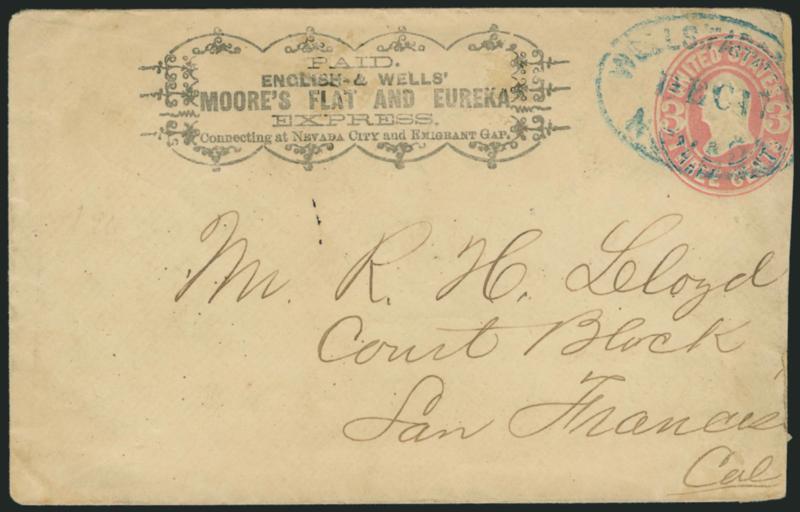 PAID.
ENGLISH & WELLS'
MOORE'S FLAT AND EUREKA
EXPRESS.
Connecting at NEVADA CITY and EMIGRANT GAP.
WELLS, FARGO
DEC 17
UNITED STATES
3 3
THREE CENTS
Mr. R. H. Lloyd
Court Block
San Francis
Cal